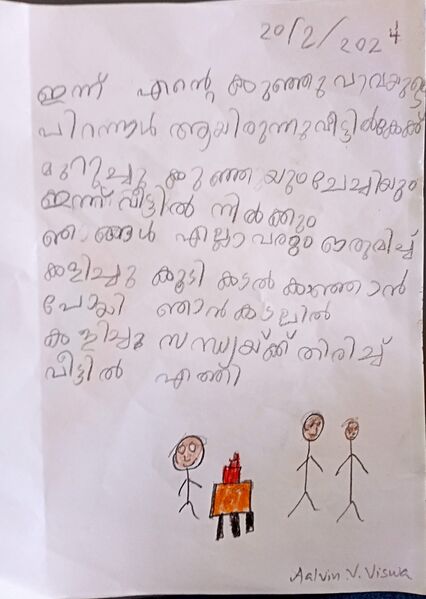 20/2/2024
ഇന്ന് എന്റെ കുഞ്ഞുവാവയുടെ
പിറന്നാൾ ആയിരുന്നു വീട്ടിൽ കേക്ക്
മുറിച്ചു കുഞ്ഞയും ചേച്ചിയും
ഇന്ന് വീട്ടിൽ നിൽക്കും
ഞങ്ങൾ എല്ലാവരും ഒരുമിച്ച്
കളിച്ചു കൂടി കടൽ കാണാൻ
പോയി ഞാൻ കടലിൽ
കളിച്ചു സന്ധ്യയ്ക്ക് തിരിച്ച്
വീട്ടിൽ എത്തി
Aalvin.V.Viswa